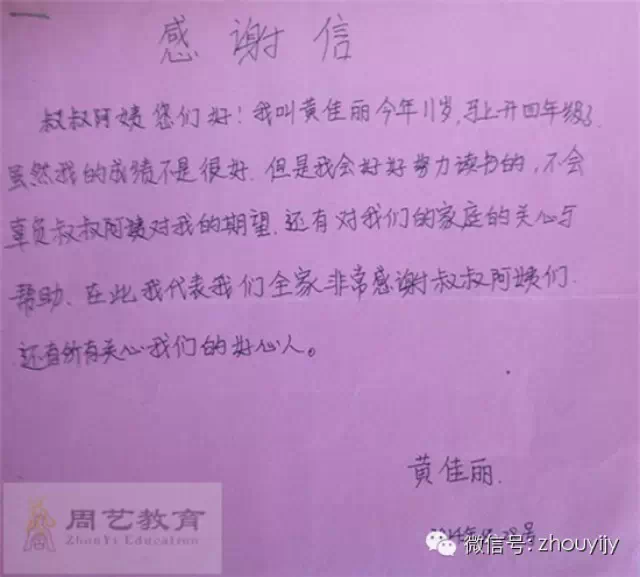 感谢信
叔叔阿姨您们好！我叫黄佳丽今年11岁，马上升四年级了.
虽然我的成绩不是很好.但是我会好好努力读书的，不会
辜负叔叔阿姨对我的期望.还有对我们的家庭的关心与
帮助、在此我代表我们全家非常感谢叔叔阿姨们.
还有所有关心我们的好心人。
黄佳丽.
周艺教育
ZhouYi Education
微信号: zhouyijy